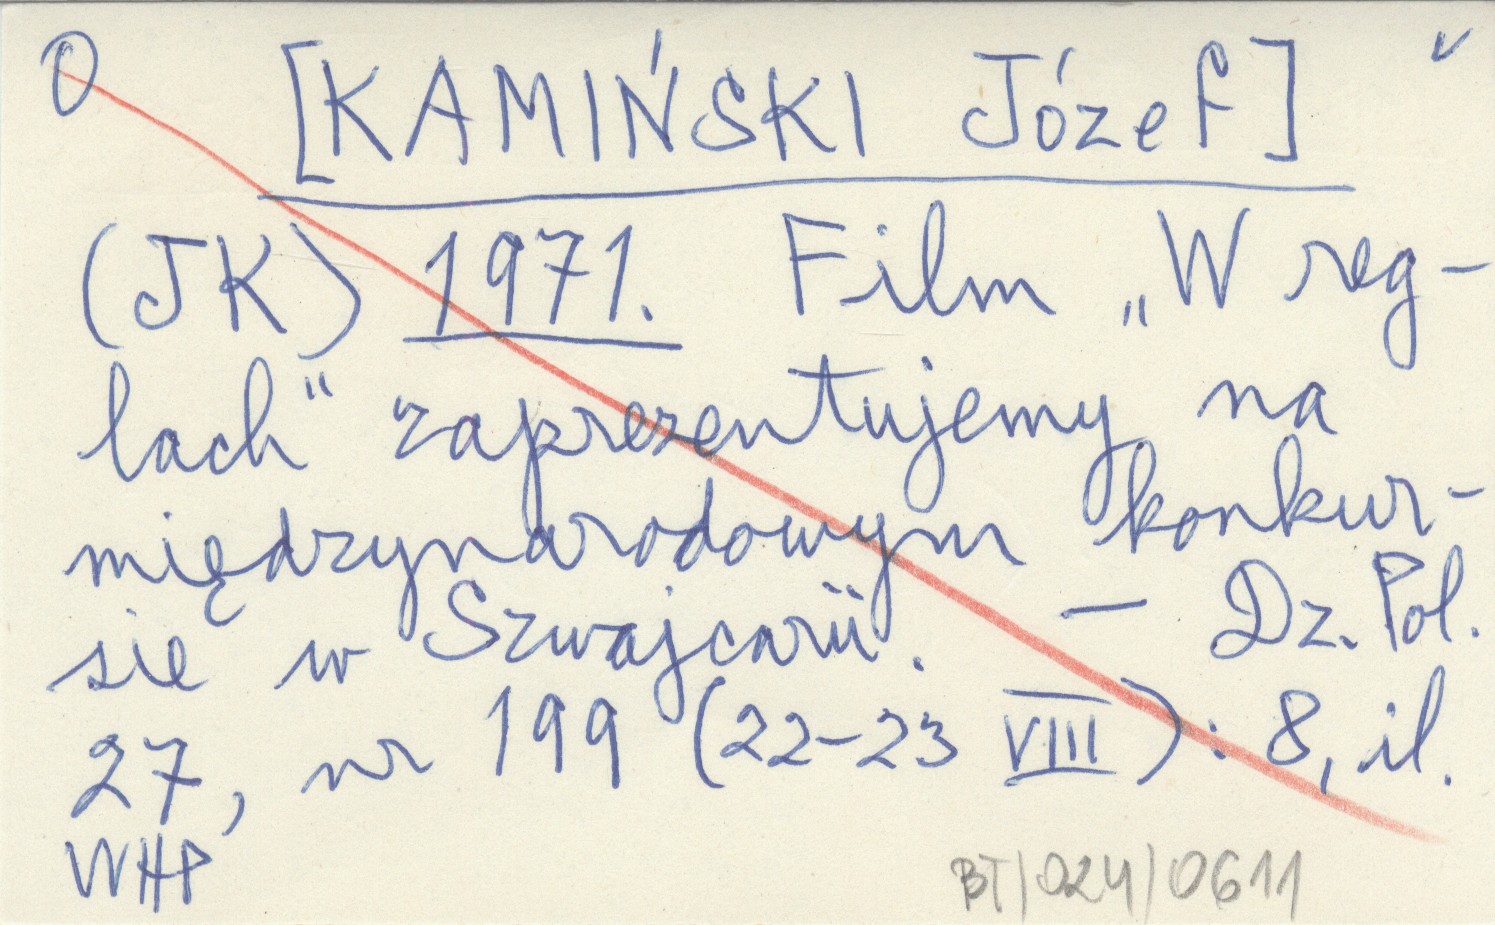 O [KAMIŃSKI Józef] v
(JK) 1971. Film „W reg-
lach" zaprezentujemy na
międzynarodowym konkur-
sie w Szwajcarii. — Dz. Pol.
27, nr 199 (22-23 VIII): 8, il.
WHP
BT/024/0611